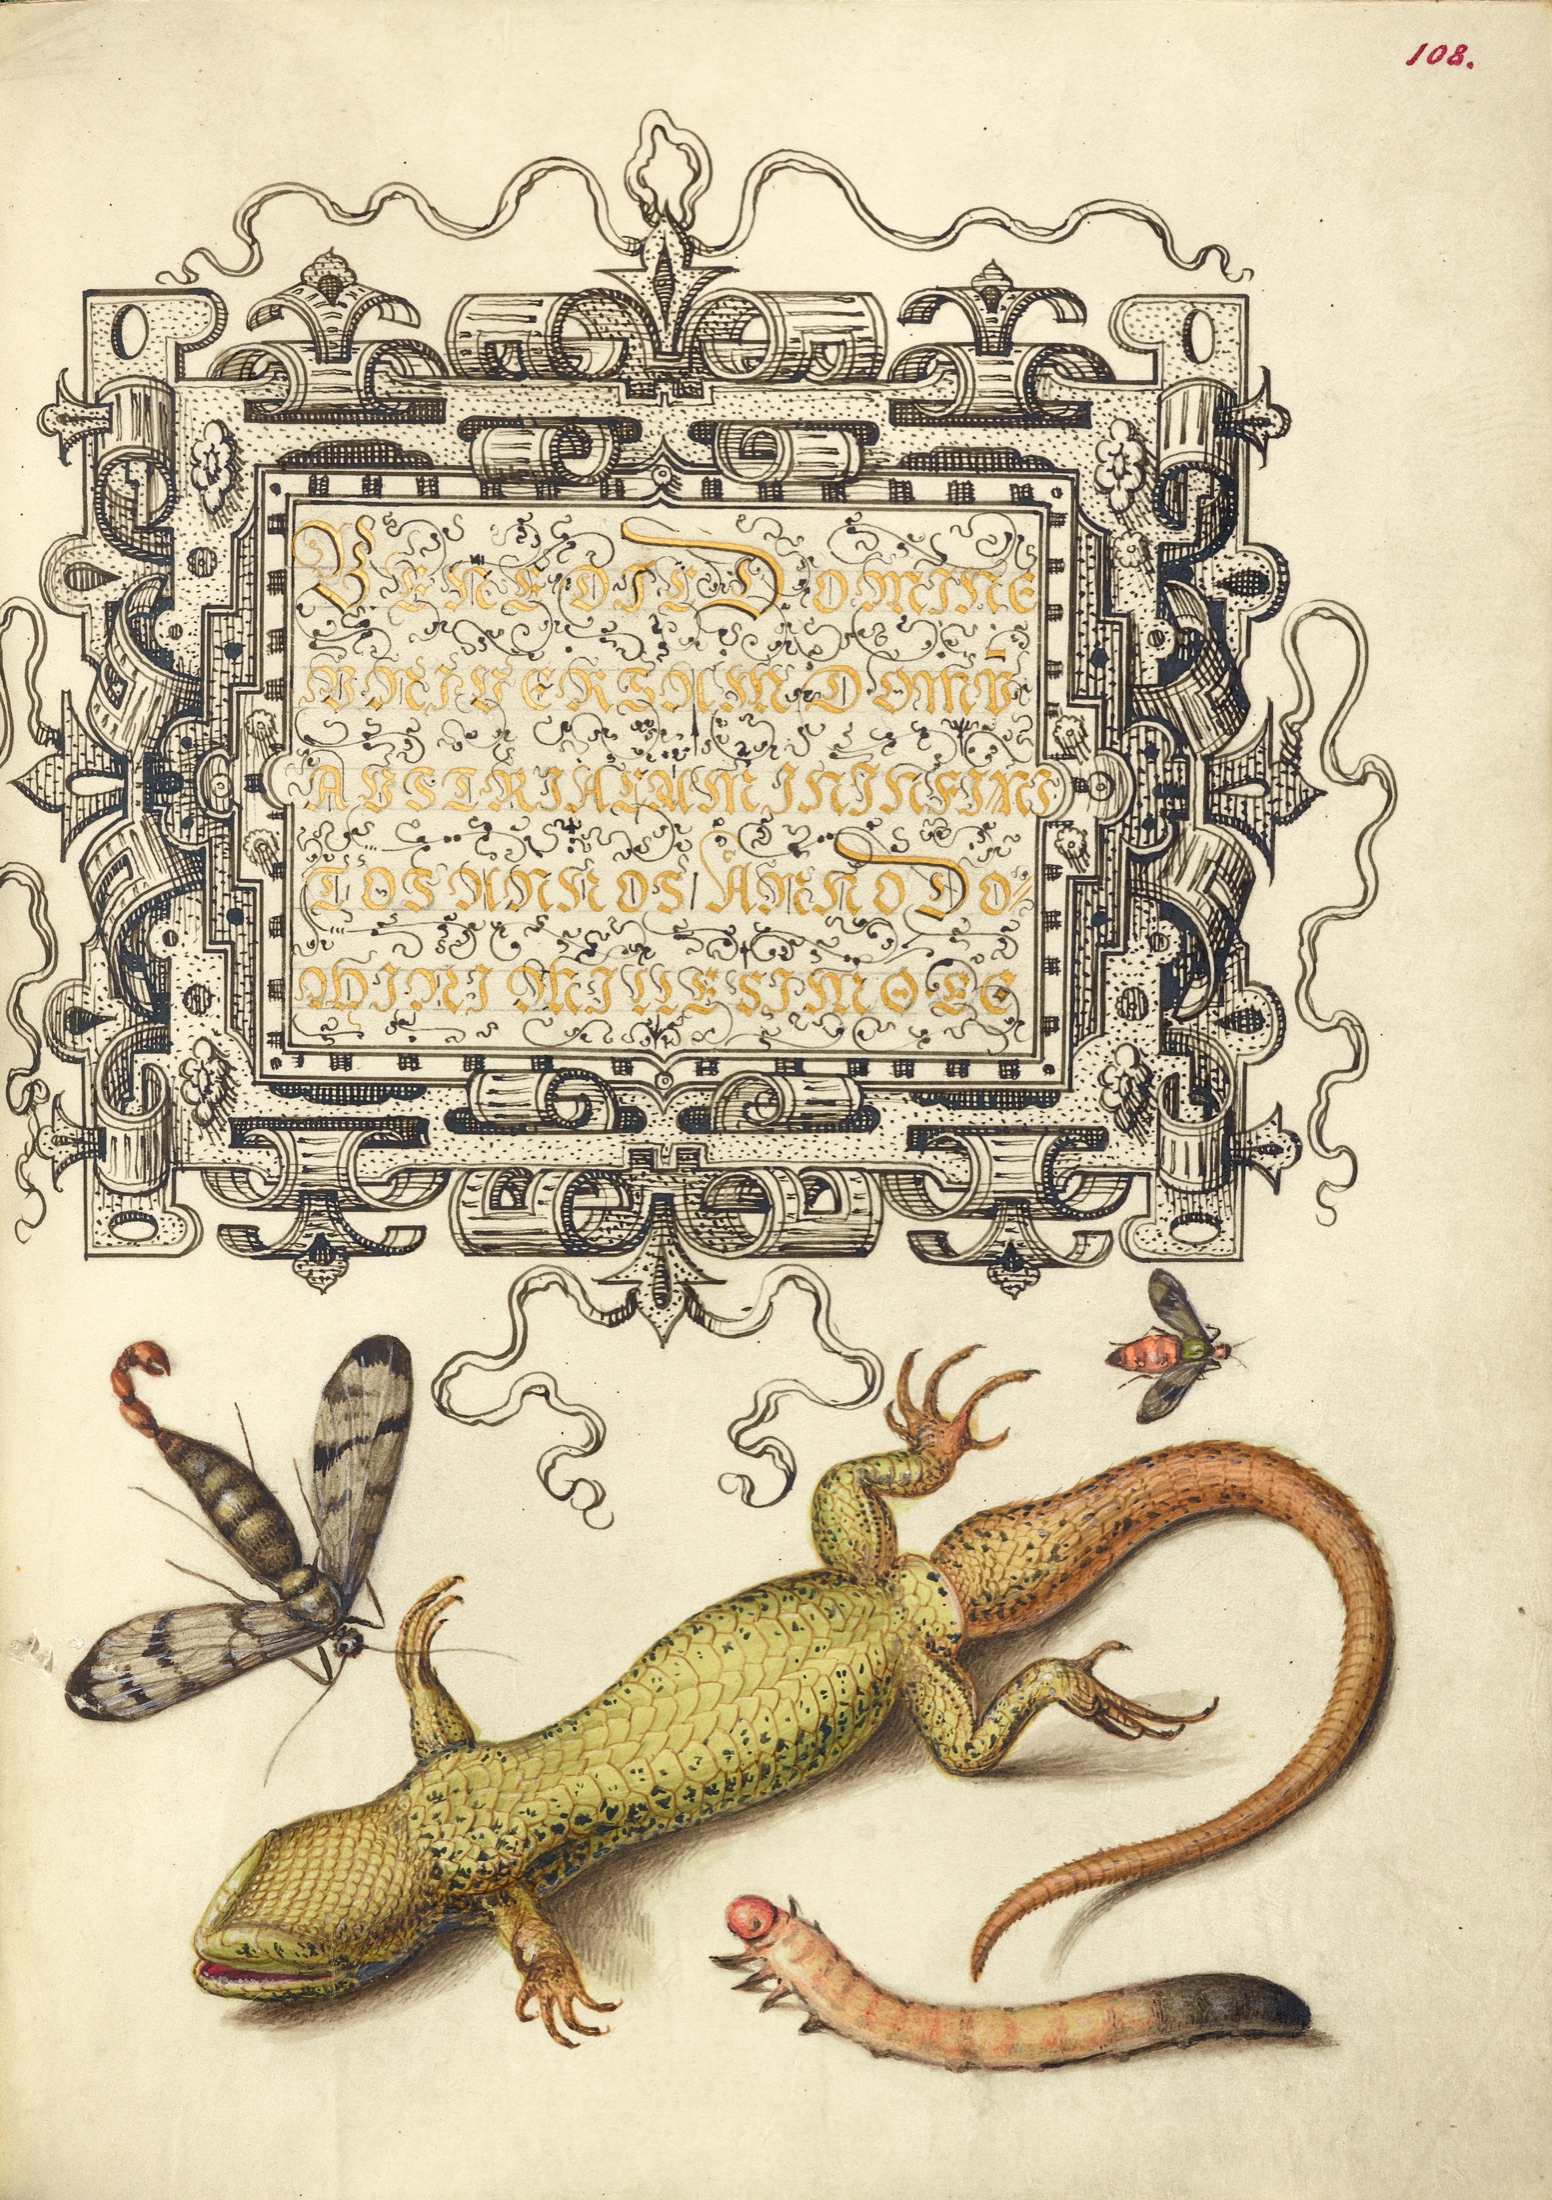 108.
BENEDIC DOMINE
VNIVERSAM DOMV̄
AVSTRIACAM IN INFINI
TOS ANNOS/ ANNO DO//
MINI MILLESIMO CC